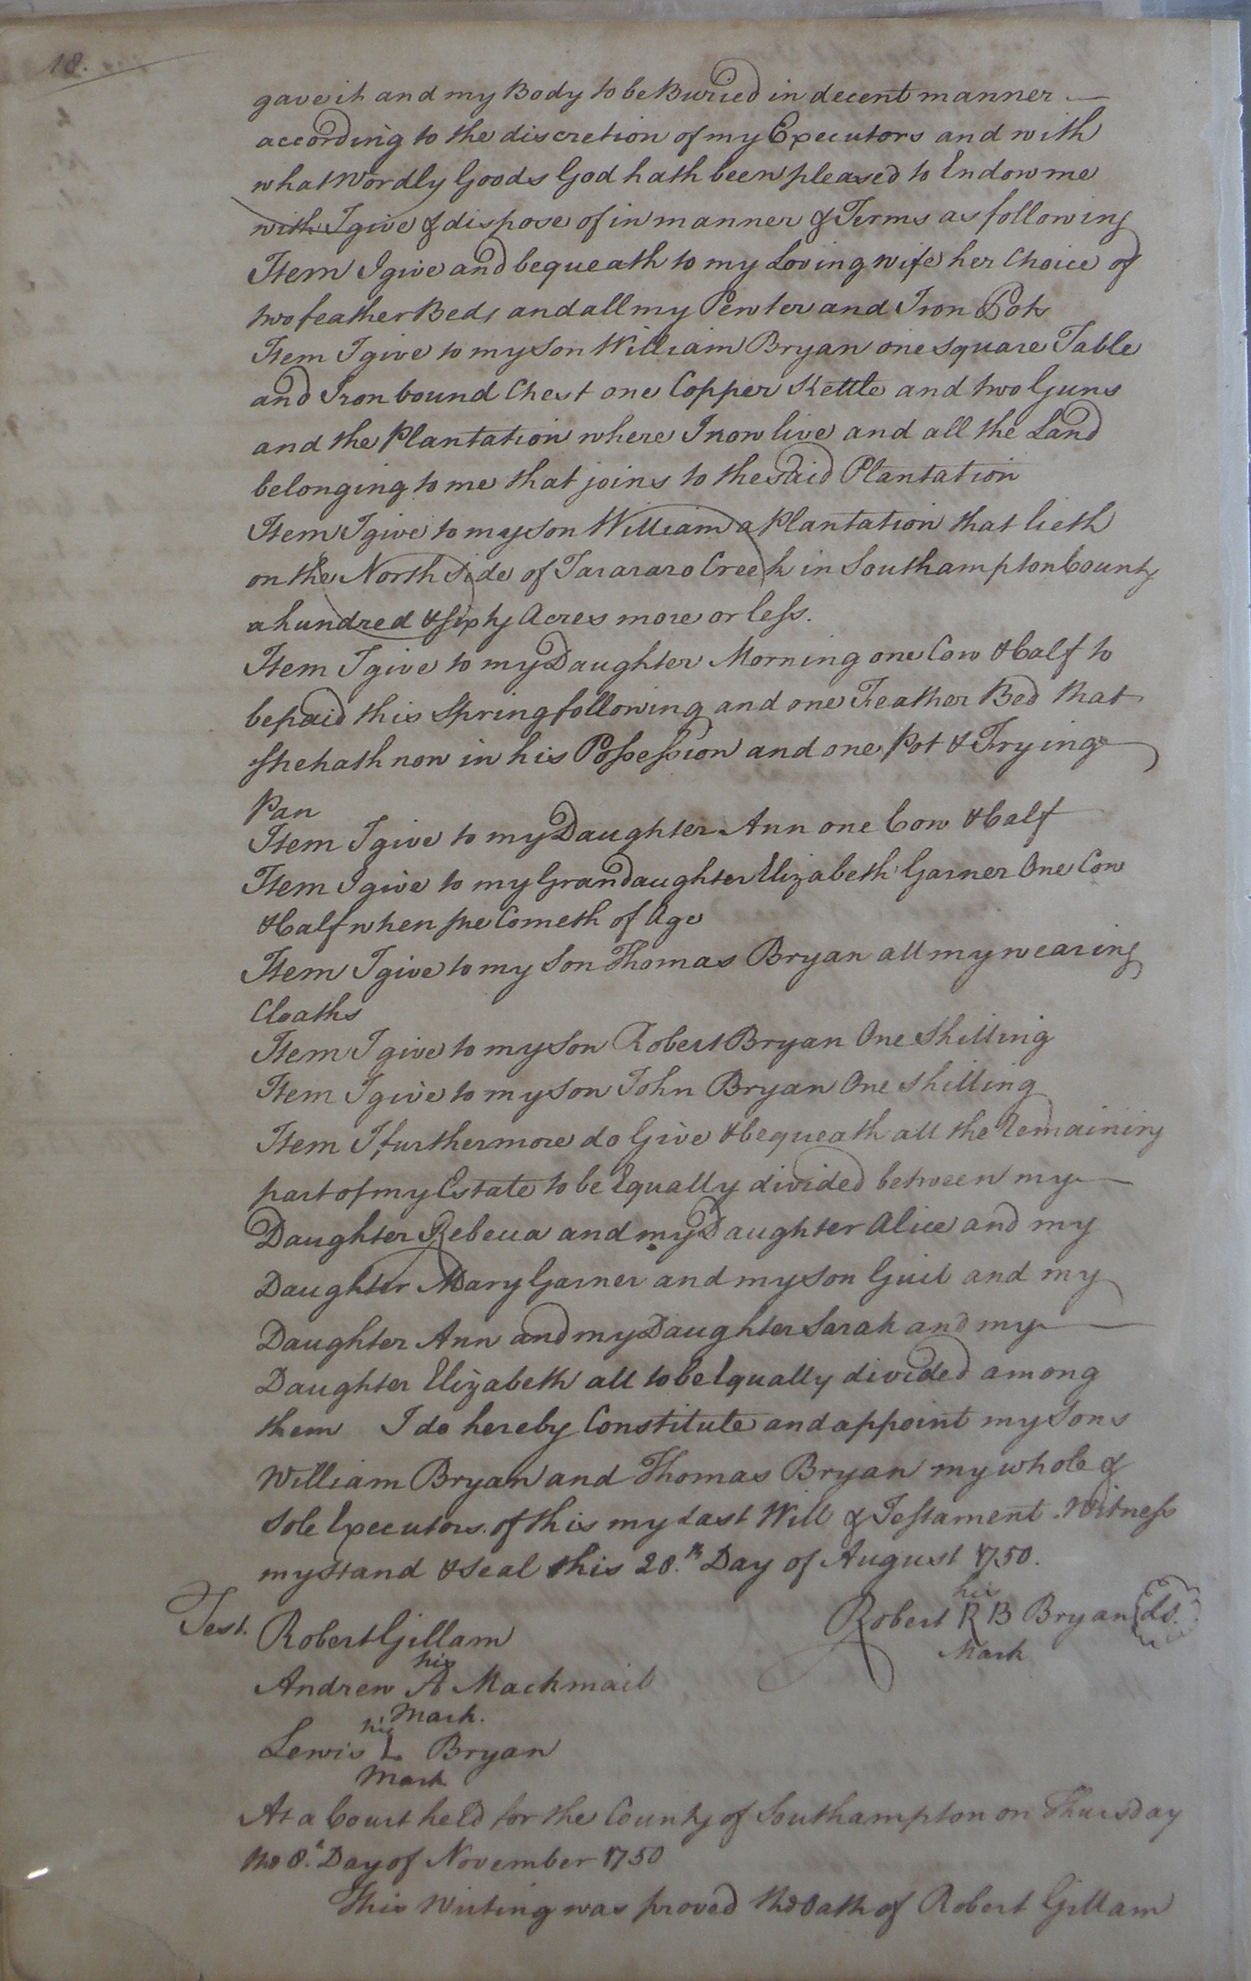 18.
gave it and my Body to be Buried in decent manner
according to the discretion of my Executors and with
what Wordly Goods God hath been pleased to Endow me
with I give & dispose of in manner & Terms as following
Item I give and bequeath to my Loving wife her Choice of
two feather Beds and all my Pewter and Iron Pots
Item I give to my Son William Bryan one square Table
and Iron bound Chest one Copper Kettle and two Guns
and the Plantation where I now live and all the Land
belonging to me that joins to the said Plantation
Item I give to my Son William a Plantation that lieth
on the North Side of Tararara Creek in Southampton County
a hundred & sixty Acres more or less.
Item I give to my Daughter Morning one Cow & Calf to
be paid this Spring following and one Feather Bed that
she hath now in his Possession and one Pot & Frying
Pan
Item I give to my Daughter Ann one Cow & Calf
Item I give to my Grandaughter Elizabeth Garner One Cow
& Calf when she Cometh of Age
Item I give to my Son Thomas Bryan all my wearing
Cloaths
Item I give to my Son Robert Bryan One Shilling
Item I give to my Son John Bryan One Shilling
Item I furthermore do Give & bequeath all the Remaining
part of my Estate to be Equally divided between my
Daughter Rebecca and my Daughter Alice and my
Daughter Mary Garner and my Son and my
Daughter Ann and my Daughter Sarah and my
Daughter Elizabeth all to be Equally divided among
them I do hereby Constitute and appoint my Sons
William Bryan and Thomas Bryan my whole &
Sole Executors of this my Last Will & Testament. Witness
my Hand & Seal this 28.th Day of August 1750.
his
Test. Robert Gillam Robert R B Bryan Ls.
his Mark
Andrew A Mackmail
Mark.
his
Lewis L Bryan
Mark
At a Court held for the County of Southampton on Thursday
the 8.th Day of November 1750
This Writing was proved the Oath of Robert Gillam